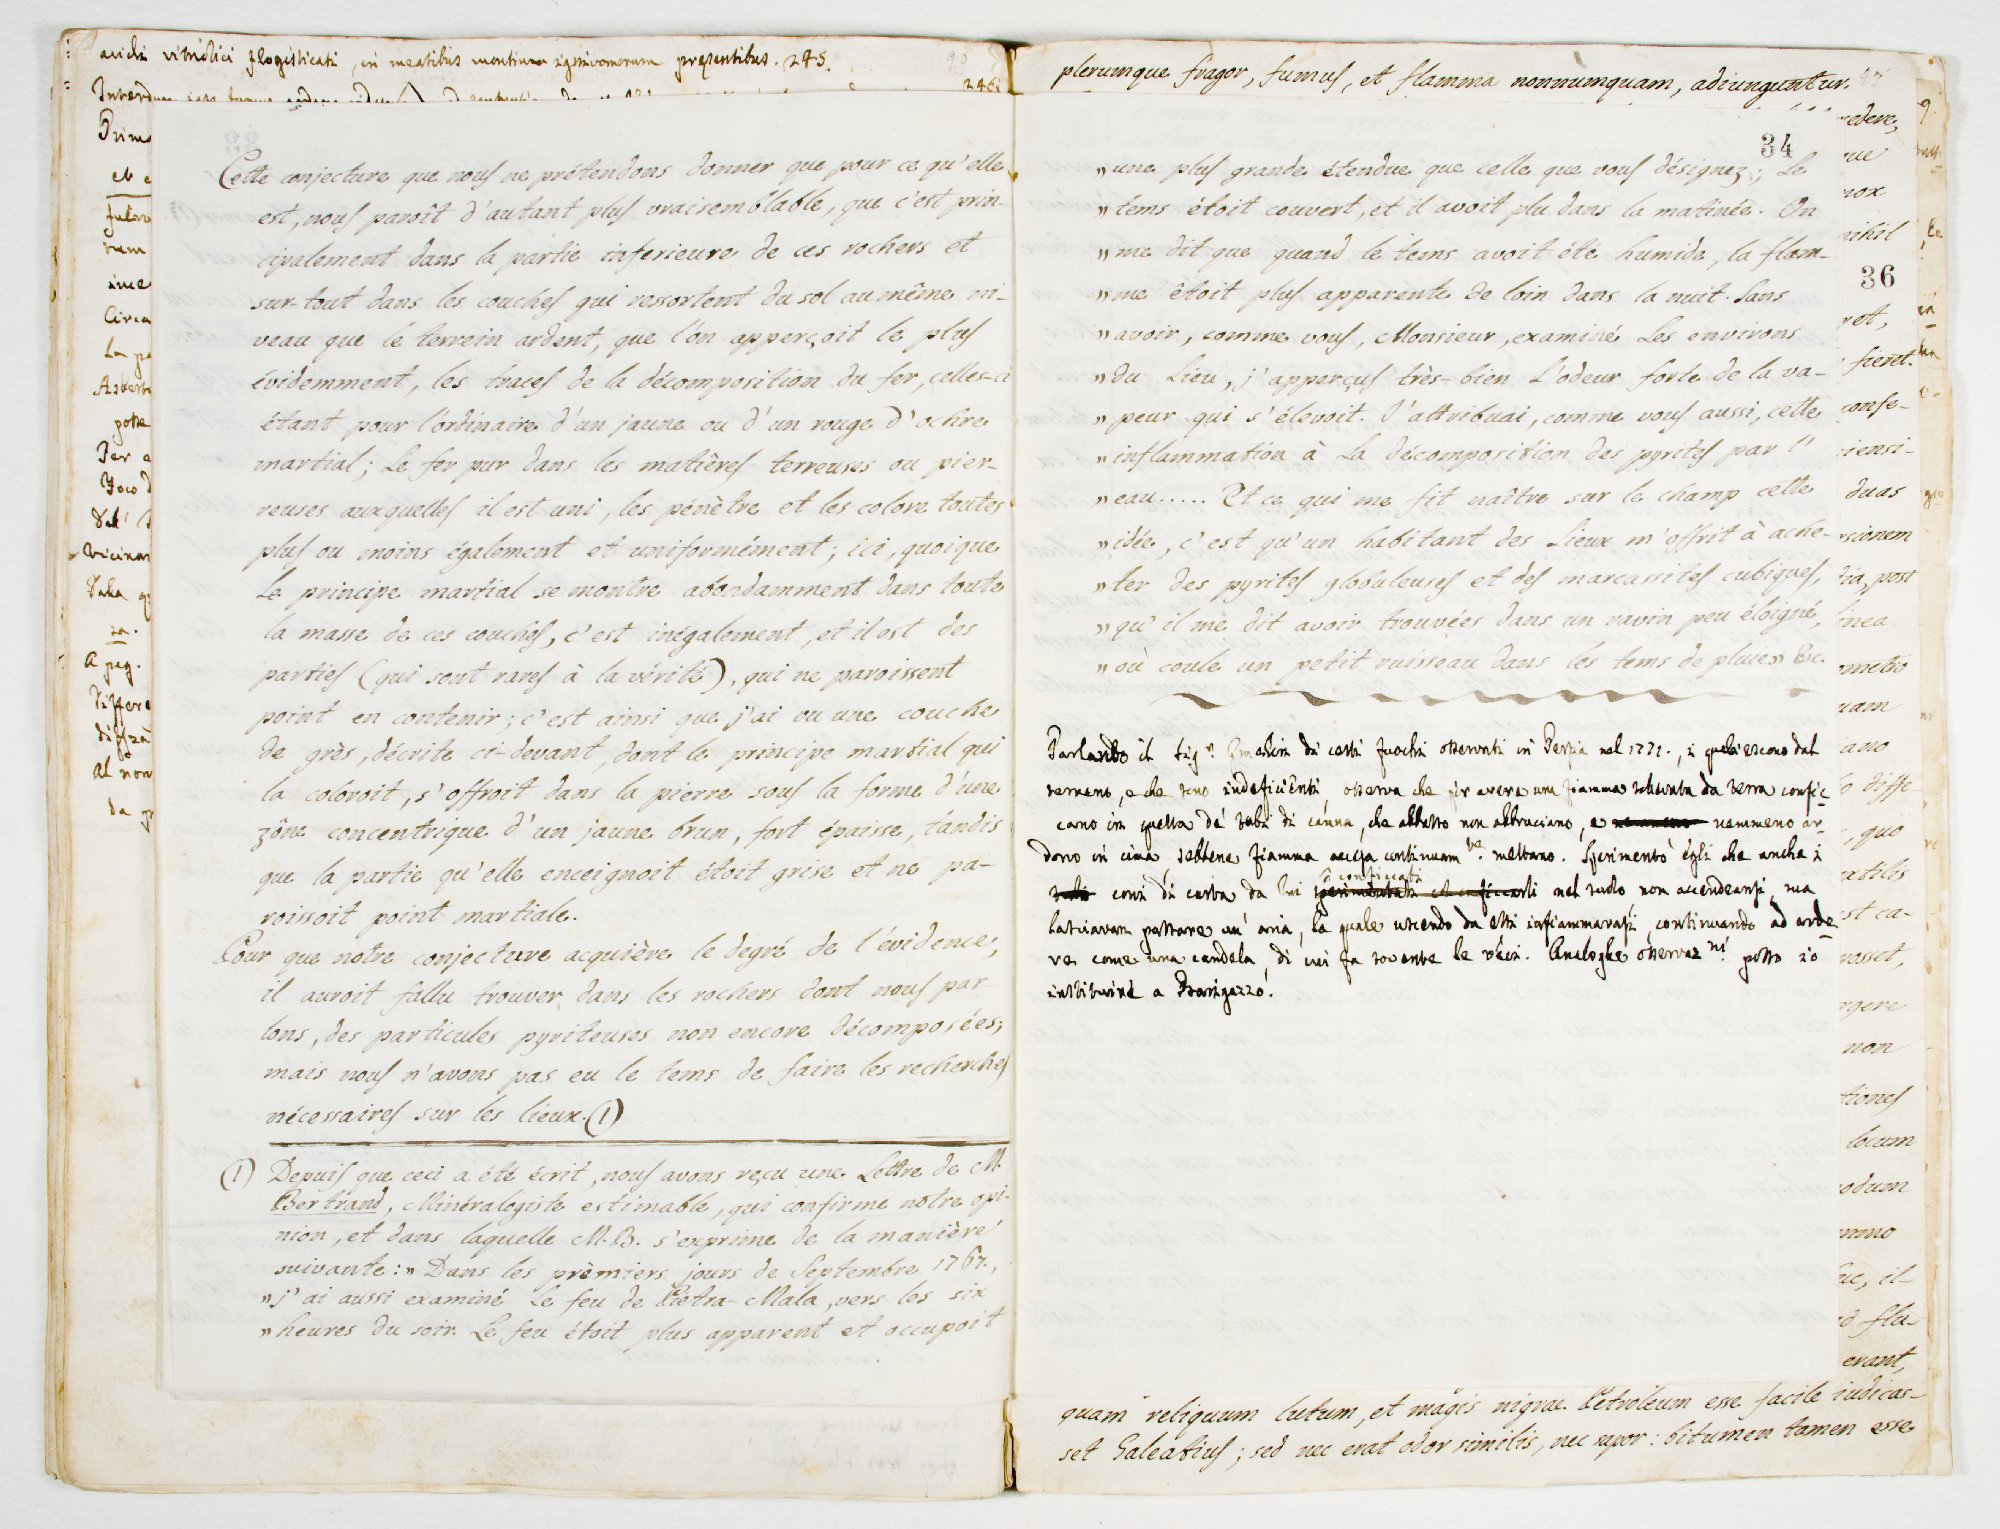 acidi vitriolici flogisticati, in meatibus montium ignivomorum presentibus. 245.
246
Cette conjecture que nous ne prétendons donner que pour ce qu'elle
est, nous paroît d'autant plus vraisemblable, que c'est prin-
cipalement dans la partie inferieure de ces rochers et
sur-tout dans les couches qui ressortent du sol au même ni-
veau que le terrein ardent, que l'on apperçoit le plus
évidemment, les traces de la décomposition du fer, celles-ci
étant pour l'ordinaire d'un jaune ou d'un rouge d'ochre
martial; Le fer pur dans les matières terreuses ou pier-
reuses auxquelles il est uni, les pénètre et les colore toutes
plus ou moins également et uniformément; ici, quoique
Le principe martial se montre abondamment dans toute
la masse de ces couches, c'est inégalement, et il est des
parties (qui sont rares à la vérité), qui ne paroissent
point en contenir; c'est ainsi que j'ai vu une couche
de grès, décrite ci-devant, dont le principe martial qui
la coloroit, s'offroit dans la pierre sous la forme d'une
zône concentrique d'un jaune brun, fort épaisse, tandis
que la partie qu'elle enceignoit étoit grise et ne pa-
roissoit point martiale.
Pour que notre conjecture acquière le degré de l'évidence,
il auroit fallu trouver dans les rochers dont nous par
lons, des particules pyriteuses non encore décomposées;
mais nous n'avons pas eu le tems de faire les recherches
nécessaires sur les lieux.(1)
(1) Depuis que ceci a été écrit, nous avons reçu une Lettre de M.
Bertrand, Minéralogiste estimable, qui confirme notre opi-
nion, et dans laquelle M.B. s'exprime de la manière
suivante: » Dans les prèmiers jours de Septembre 1767.,
» j'ai aussi examiné Le feu de Pietra-Mala, vers les six
» heures du soir. Le feu étoit plus apparent et occupoit
plerumque fragor, fumus, et flamma nonnumquam, adiunguntur.
34
» une plus grande étendue que celle que vous désignez; Le
» tems étoit couvert, et il avoit plu dans la matinée. On
» me dit que quand le tems avoit été humide, la flam-
36
» me étoit plus apparente de loin dans la nuit. Sans
» avoir, comme vous, Monsieur, examiné Les environs
» du Lieu, j'apperçus très-bien L'odeur forte de la va-
» peur qui s'élevoit. J'attribuai, comme vous aussi, cette
» inflammation à La décomposition des pyrites par l'
» eau..... Et ce qui me fit naître sur le champ cette
» idée, c'est qu'un habitant des Lieux m'offrit à ache-
» ter des pyrites globuleuses et des marcassites cubiques,
» qu'il me dit avoir trouvées dans un ravin peu éloigné,
» où coule un petit ruisseau dans les tems de pluie» &c.
Parlando il Sig.r Gmelin di certi fuochi osservati in Persia nel 1771., i quali escono dal
terreno, e che sono indeficienti osserva che per avere una fiamma sollevata da terra confic-
cano in quella de' tubi di canna, che abbasso non abbruciano, e nemmeno ar-
dono in cima, sebbene fiamma accesa continuam.te mettano. Sperimentò egli che anche i
coni di carta da lui conficcati nel suolo non accendeansi, ma
lasciavan passare un'aria, la quale uscendo da essi infiammavasi, continuando ad arde
re come una candela, di cui fa sovente le veci. Analoghe osservaz.ni posso io
instituire a Barigazzo.
quam reliquum lutum, et magis nigrae. Petroleum esse facile iudicas-
set Galeatius; sed nec erat odor similis, nec sapor: bitumen tamen esse